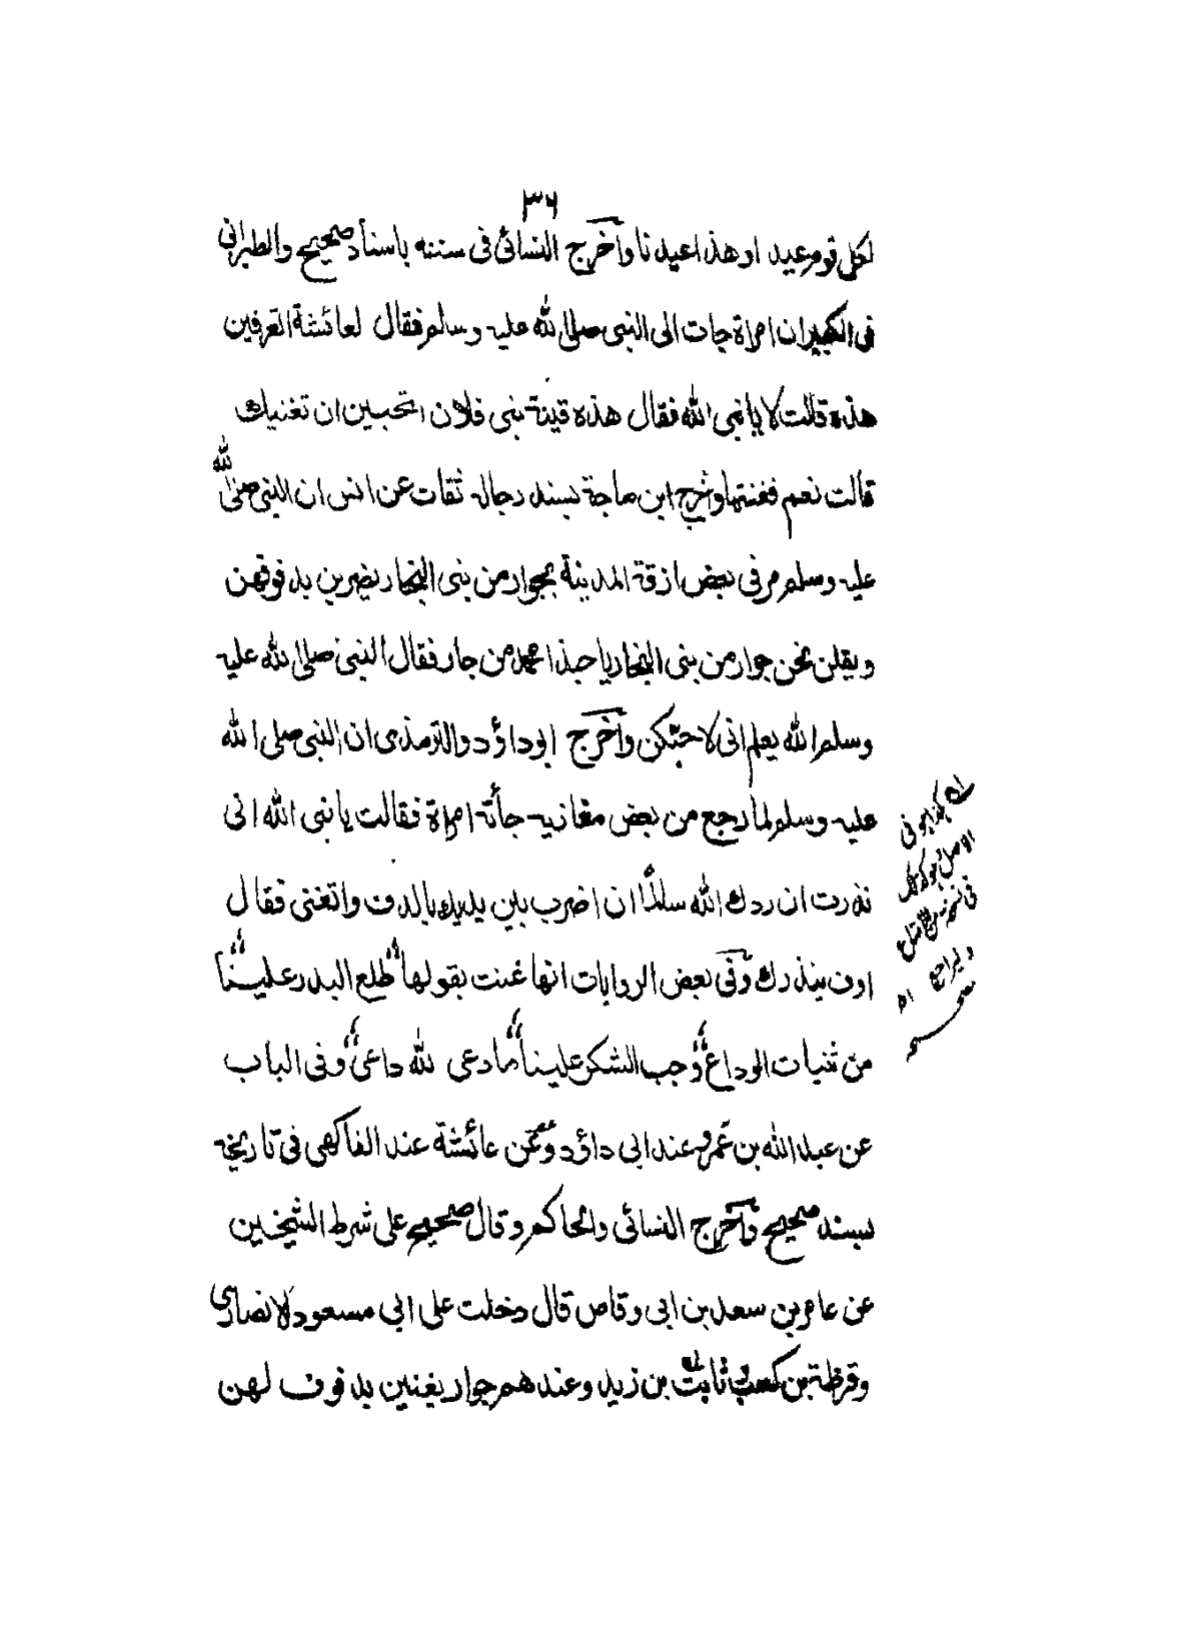 ٣٦
لكل قوم عيد او هذا عيدنا وآخرج النسائى فى سننه باسناد صحيح والطبرانى
فى الكبيران امراة جات الى النبى صلى الله عليه وسلم فقال لعائشة اتعرفين
هذه قالت لا يا نبى الله فقال هذه قينة بنى فلان اتحبين ان تغنيك
قالت نعم فغنتها وآخرج ابن ماجة بسند رجاله ثقات عن انس ان النبى صلى الله
عليه وسلم مر فى بعض ازقة المدينة بجوار من بنى النجار يضربن بدفوفهن
ويقلن نحن جوار من بنى النجار يا حبذا محمد من جار فقال النبى صلى الله عليه
وسلم الله يعلم انى لاحبكن وآخرج ابوداؤد والترمذى ان النبى صلى الله
عليه وسلم لما رجع من بعض مغازيه جأته امراة فقالت يا نبى الله انى
نذرت ان ردك الله سالمًا ان اضرب بين يديك بالدف واتغنى فقال
اوف بنذرك وفى بعض الروايات انها غنت بقولها طلع البدر علينا
من ثنيات الوداع وجب الشكر علينا ما دعى لله داعى وفى الباب
عن عبد الله بن عمرو عند ابى داؤد وعن عائشة عند الفاكهى فى تاريخه
بسند صحيح وآخرج النسائى والحاكم وقال صحيح على شرط الشيخين
عن عامر بن سعد بن ابى وقاص قال دخلت على ابى مسعود الانصارى
وقرظة بن كعب ثابت بن زيد وعندهم جوار يغنين بدفوف لهن
هكذا هو فى
الاصل
فى نسخة
وليراجع اه